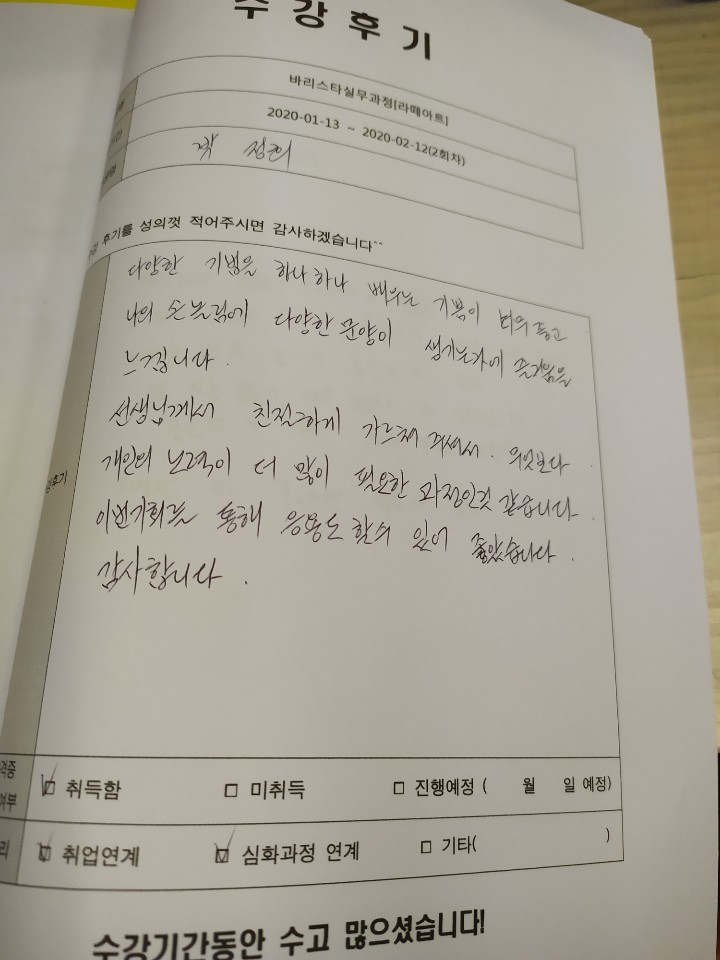 수 강 후 기
바리스타실무과정[라떼아트]
2020-01-13 ~ 2020-02-12(2회차)
후기를 성의껏 적어주시면 감사하겠습니다^^
다양한 기법을 하나하나 배우는 기쁨이 좋고
나의 손놀림에 다양한 문양이 생기는가에 즐거움을
느낍니다.
선생님께서 친절하게 가르쳐 주셔서. 무엇보다
개인의 노력이 더 많이 필요한 과정인것 같습니다.
이번기회를 통해 응용도 할수 있어 좋았습니다.
감사합니다.
후기
취득함 미취득 진행예정( 월 일 예정)
취업연계 심화과정 연계 기타( )
수강기간동안 수고 많으셨습니다!